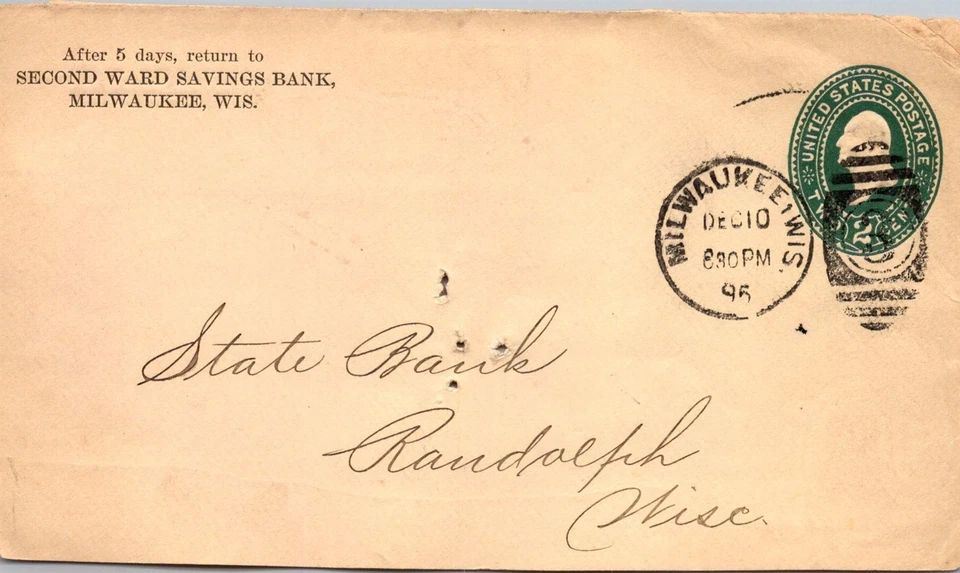 After 5 days, return to
SECOND WARD SAVINGS BANK,
MILWAUKEE, WIS.
UNITED STATES POSTAGE
2
MILWAUKEE, WIS.
DEC 10
830 PM
95
State Bank
Randolph
Wisc.